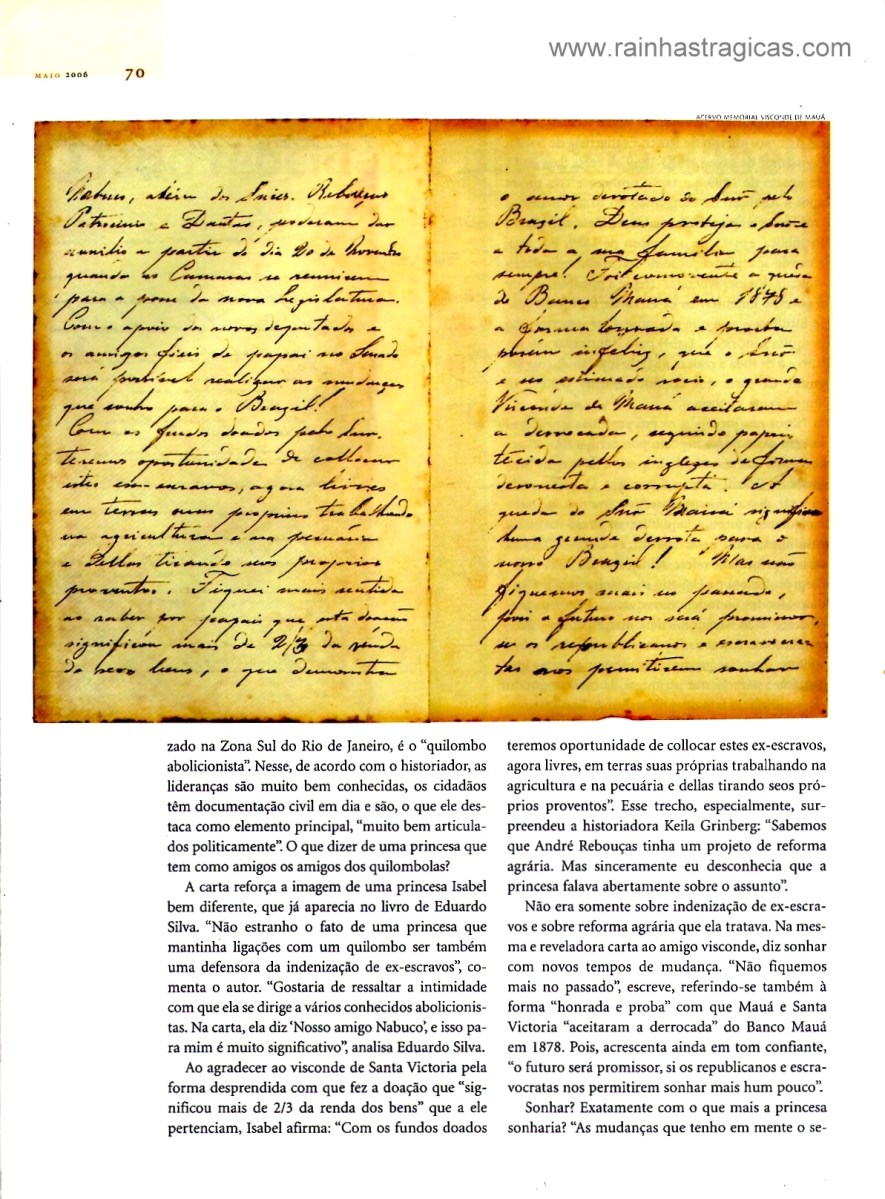 www.rainhastragicas.com
MAIO 2006 70
ACERVO MEMORIAL VISCONDE DE MAUÁ
Nabuco, além dos Snres. Rebouças
Patrocinio e Dantas, poderam dar
auxilio a partir do dia 20 de Novembro
quando as Camaras se reunirem
para a posse da nova Legislatura.
Com o apoio dos novos deputados e
os amigos fieis de papai no Senado
será possivel realizar as mudanças
que sonho para o Brazil!
Com os fundos doados pelo Snr.
teremos oportunidade de collocar
estes ex-escravos, agora livres
em terras suas proprias trabalhando
na agricultura e na pecuária
e dellas tirando seos proprios
proventos. Fiquei mais sentida
ao saber por papai que esta doação
significou mais de 2/3 da venda
de seos bens, o que demonstra
o amor devotado do Snr. pelo
Brazil. Deus proteja o Snr. e
a toda a sua familia para
sempre! Foi comovente a queda
do Banco Mauá em 1878 e
a forma honrada e proba
porém infeliz, que o Snr.
e seo estimado socio, o grande
Visconde de Mauá aceitaram
a derrocada, segundo papai
tecida pellos inglezes de forma
desonesta e corrupta. A
queda do Snr. Mauá significou
huma grande derrota para o
nosso Brazil! Mas não
fiquemos mais no passado,
pois o futuro nos será promissor,
se os republicanos e escravocra-
tas nos permitirem sonhar
zado na Zona Sul do Rio de Janeiro, é o “quilombo
abolicionista”. Nesse, de acordo com o historiador, as
lideranças são muito bem conhecidas, os cidadãos
têm documentação civil em dia e são, o que ele des-
taca como elemento principal, “muito bem articula-
dos politicamente”. O que dizer de uma princesa que
tem como amigos os amigos dos quilombolas?
A carta reforça a imagem de uma princesa Isabel
bem diferente, que já aparecia no livro de Eduardo
Silva. “Não estranho o fato de uma princesa que
mantinha ligações com um quilombo ser também
uma defensora da indenização de ex-escravos”, co-
menta o autor. “Gostaria de ressaltar a intimidade
com que ela se dirige a vários conhecidos abolicionis-
tas. Na carta, ela diz ‘Nosso amigo Nabuco’, e isso pa-
ra mim é muito significativo”, analisa Eduardo Silva.
Ao agradecer ao visconde de Santa Victoria pela
forma desprendida com que fez a doação que “sig-
nificou mais de 2/3 da renda dos bens” que a ele
pertenciam, Isabel afirma: “Com os fundos doados
teremos oportunidade de collocar estes ex-escravos,
agora livres, em terras suas próprias trabalhando na
agricultura e na pecuária e dellas tirando seos pró-
prios proventos”. Esse trecho, especialmente, sur-
preendeu a historiadora Keila Grinberg: “Sabemos
que André Rebouças tinha um projeto de reforma
agrária. Mas sinceramente eu desconhecia que a
princesa falava abertamente sobre o assunto”.
Não era somente sobre indenização de ex-escra-
vos e sobre reforma agrária que ela tratava. Na mes-
ma e reveladora carta ao amigo visconde, diz sonhar
com novos tempos de mudança. “Não fiquemos
mais no passado”, escreve, referindo-se também à
forma “honrada e proba” com que Mauá e Santa
Victoria “aceitaram a derrocada” do Banco Mauá
em 1878. Pois, acrescenta ainda em tom confiante,
“o futuro será promissor, si os republicanos e escra-
vocratas nos permitirem sonhar mais hum pouco”.
Sonhar? Exatamente com o que mais a princesa
sonharia? “As mudanças que tenho em mente o se-